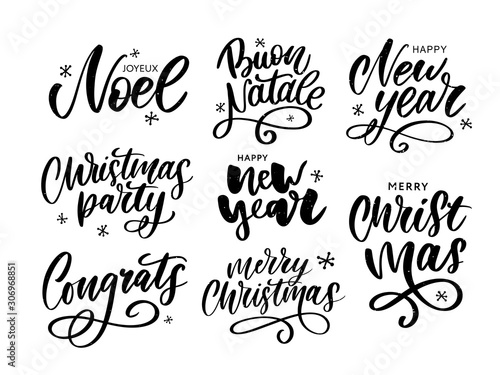 JOYEUX
Noel
Buon
Natale
HAPPY
New
year
Christmas
party
HAPPY
new
year
MERRY
Christ
mas
Congrats
merry
Christmas
Adobe Stock | #306968851